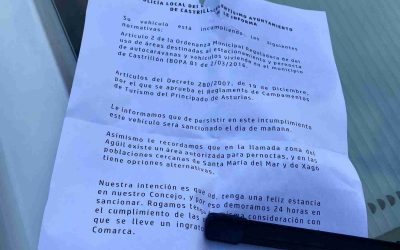 POLICÍA LOCAL DEL AYUNTAMIENTO
DE CASTRILLÓN LE INFORMA
Su vehículo está incumpliendo las siguientes
normativas:
Artículo 2 de la Ordenanza Municipal Reguladora del
uso de áreas destinadas al estacionamiento y pernocta
de autocaravanas y vehículos vivienda en el municipio
de Castrillón (BOPA 81 de 2/03/2016.
Artículos del Decreto 280/2007, de 19 de Diciembre,
por el que se aprueba el Reglamento de Campamentos
de Turismo del Principado de Asturias.
Le informamos que de persistir en este incumplimiento
este vehículo será sancionado el día de mañana.
Asimismo le recordamos que en la llamada zona del
Agüil existe un área autorizada para pernoctas, y en las
poblaciones cercanas de Santa María del Mar y de Xagó
tiene opciones alternativas.
Nuestra intención es que Ud. tenga una feliz estancia
en nuestro Concejo, y por eso demoramos 24 horas en
sancionar. Rogamos tenga misma consideración con
el cumplimiento de las
que se lleve un ingrato
Comarca.